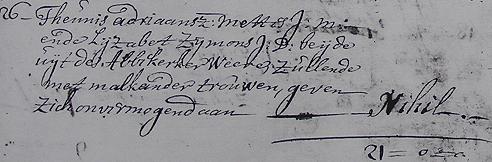 26 - Theunis adriaansz: mettes J: m:
ende Lijzabet Zijmons J: D: beijde
uijt des Abbikerker Weere; Zullende
met malkander trouwen, geven
Zich onvermogend aan Nihil.
21 = 0 = 0